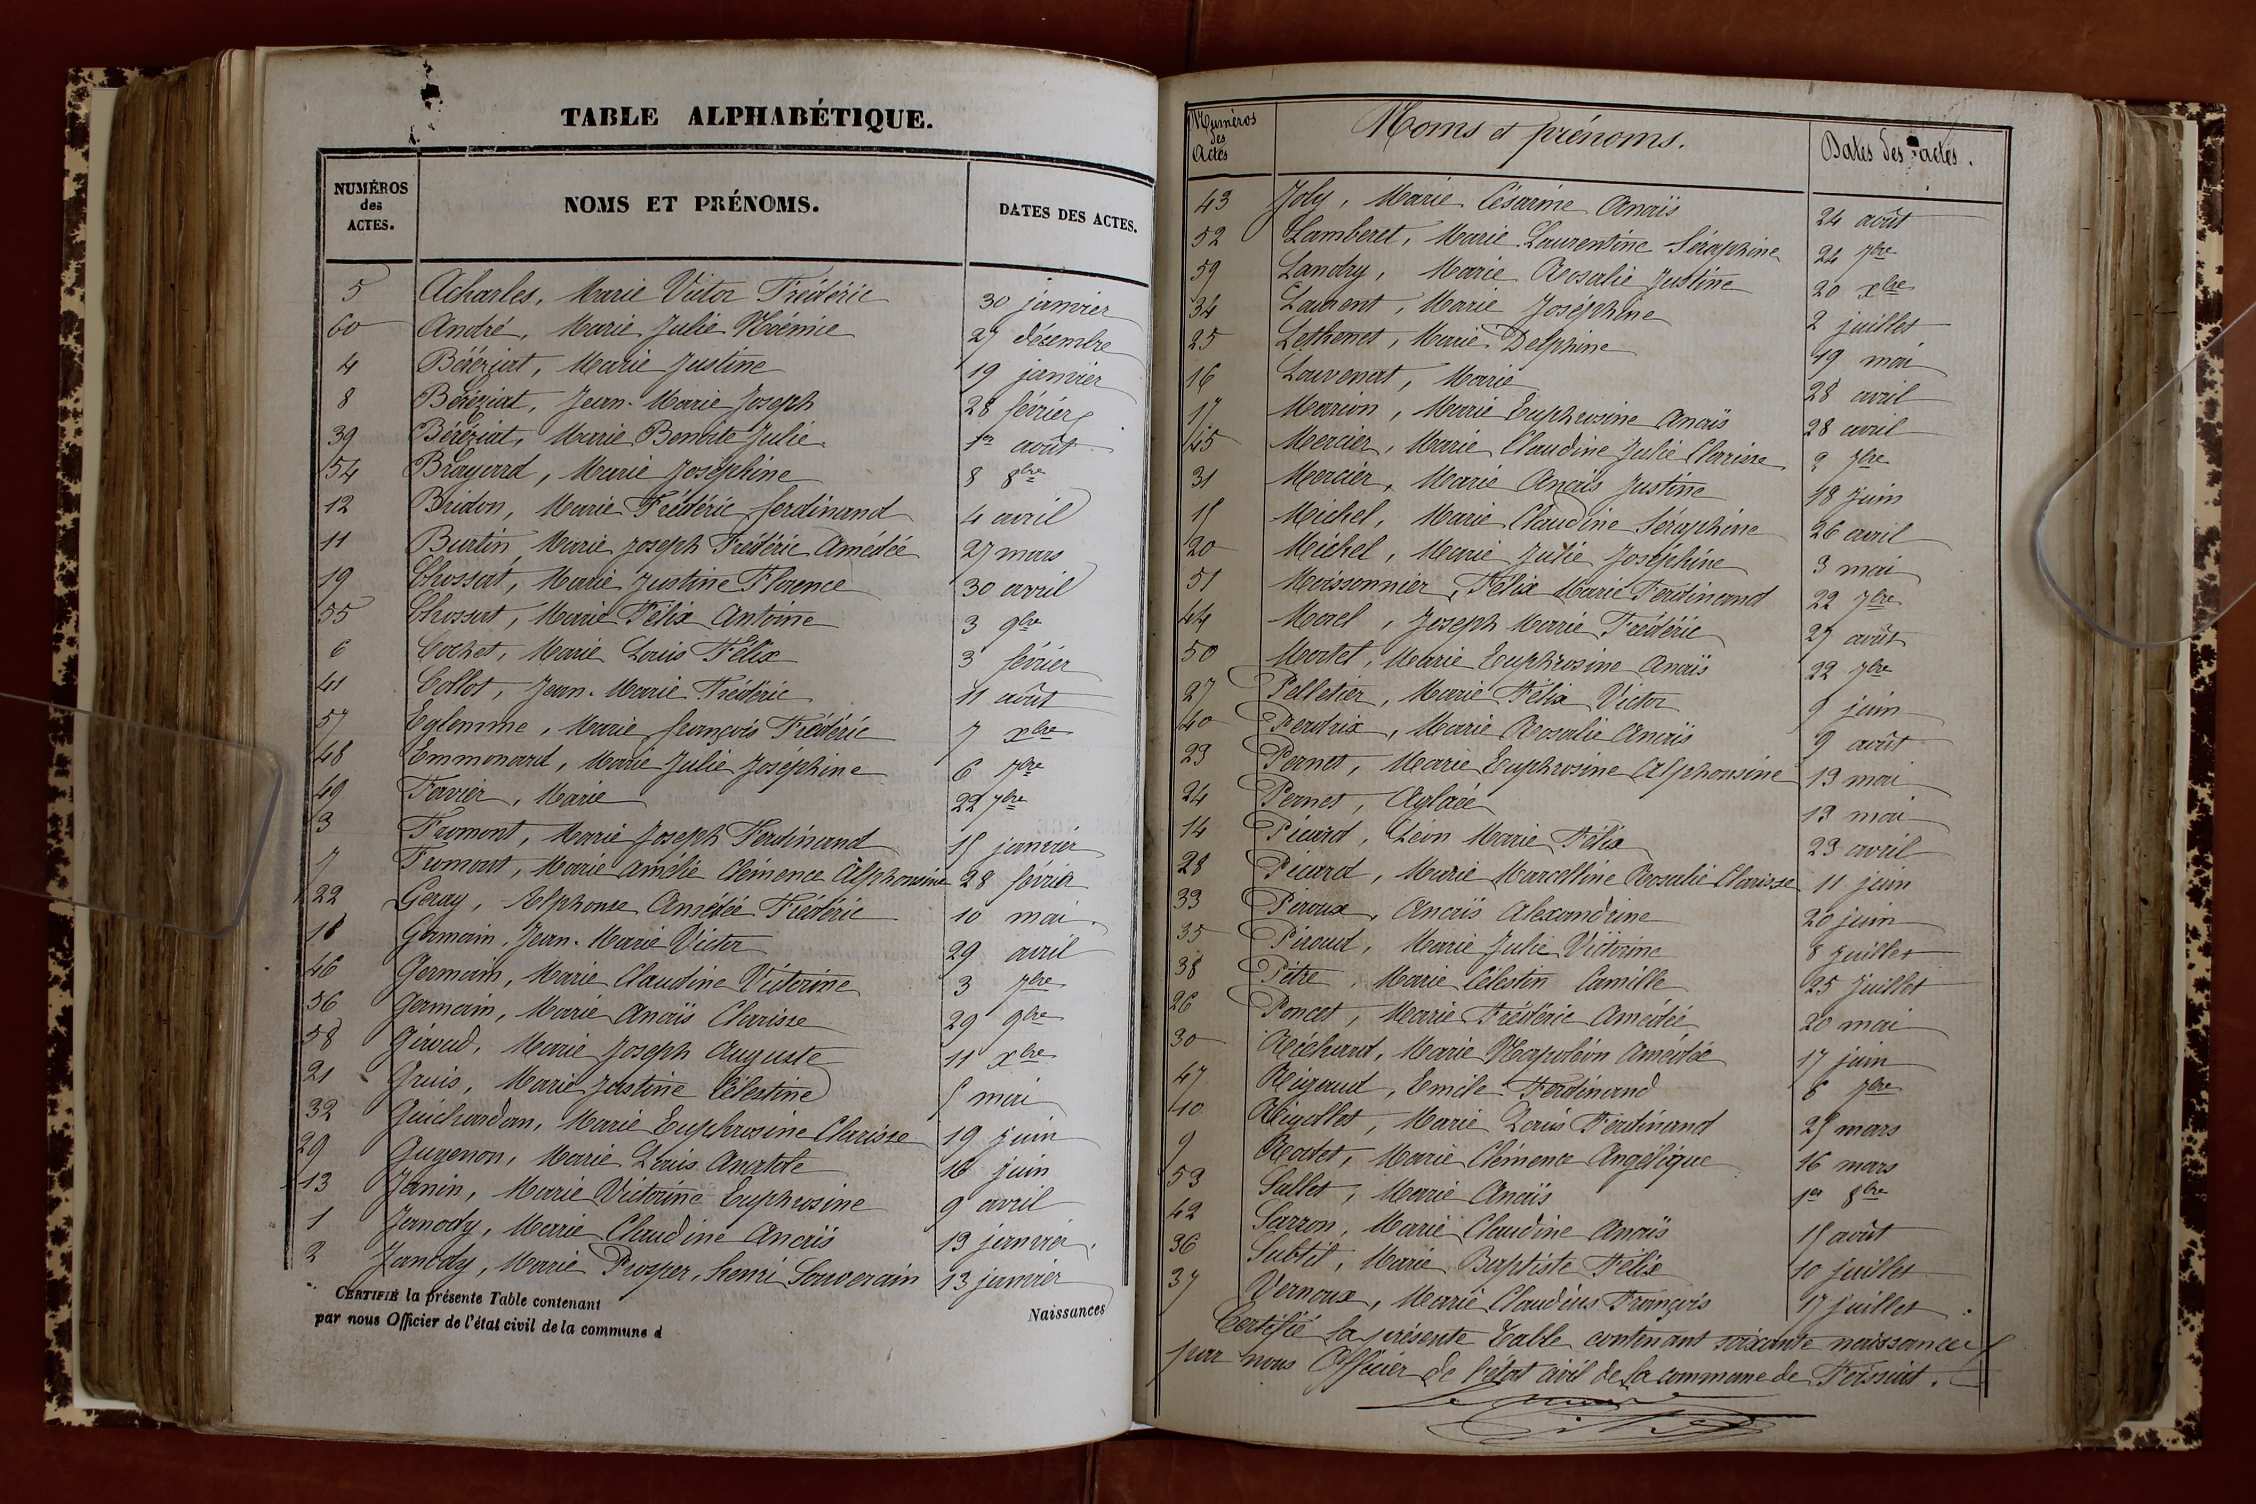 TABLE ALPHABÉTIQUE.
NUMÉROS des ACTES. NOMS ET PRÉNOMS. DATES DES ACTES.
5 Acharles, Marie Victor Frédéric 30 janvier
60 André, Marie Julie Noémie 27 décembre
4 Béréziat, Marie Justine 19 janvier
8 Béréziat, Jean-Marie Joseph 28 février
39 Béréziat, Marie Benoite Julie 1er août
54 Brayard, Marie Joséphine 8 8bre
12 Bridon, Marie Frédéric ferdinand 4 avril
11 Burtin Marie joseph Frédéric Amédée 27 mars
19 Chossat, Marie Justine Florence 30 avril
55 Chossat, Marie Félix Antoine 3 9bre
6 Cochet, Marie Louis Félix 3 février
41 Collot, Jean-Marie Frédéric 11 août
57 Eglemme, Marie françois Frédéric 7 xbre
48 Emmonard, Marie Julie Joséphine 6 7bre
49 Favier, Marie 22 7bre
3 Fromont, Marie Joseph Ferdinand 15 janvier
7 Fromont, Marie Amélie Clémence Alphonsine 28 février
22 Geray, Alphonse Amédée Frédéric 10 mai.
18 Germain, Jean-Marie Victor 29 avril
46 Germain, Marie Claudine Victorine 3 7bre
56 Germain, Marie Anaïs Clarisse 29 9bre
58 Giroud, Marie Joseph Auguste 11 xbre
21 Gruis, Marie Justine Célestine 5 mai
32 Guichardan, Marie Euphrosine Clarisse 19 juin
29 Guyenon, Marie Louis Anatole 16 juin
13 Janin, Marie Victorine Euphrosine 9 avril
1 Janody, Marie Claudine Anaïs 13 janvier.
2 Janody, Marie Prosper, henri Souverain 13 janvier
CERTIFIÉ la présente Table contenant Naissances
par nous Officier de l'état civil de la commune d
Numéros des Actes Noms et prénoms. Dates des actes.
43 Joly, Marie Césarine Anaïs 24 août
52 Lamberet, Marie Laurentine Séraphine 24 7bre
59 Landry, Marie Rosalie Justine 20 xbre
34 Laurent, Marie Joséphine 2 juillet
25 Lethenet, Marie Delphine 19 mai
16 Louvenat, Marie 28 avril
17 Marion, Marie Euphrosine Anaïs 28 avril
45 Mercier, Marie Claudine Julie Clarisse 2 7bre
31 Mercier, Marie Anaïs Justine 18 Juin
15 Michel, Marie Claudine Séraphine 26 avril
20 Michel, Marie Julie Joséphine 3 mai
51 Moissonnier, Félix Marie Ferdinand 22 7bre
44 Morel, Joseph Marie Frédéric 27 août
50 Mortel, Marie Euphrosine Anaïs 22 7bre
27 Pelletier, Marie Félix Victor 9 juin
40 Perdrix, Marie Rosalie Anaïs 9 août
23 Pernet, Marie Euphrosine Alphonsine 13 mai
24 Pernet, Aglaée 13 mai
14 Picard, Léon Marie Félix 23 avril
28 Picard, Marie Marcelline Rosalie Clarisse 11 juin
33 Piroux, Anaïs Alexandrine 20 juin
35 Piroud, Marie Julie Victorine 8 juillet
38 Pitre, Marie Célestin Camille 25 juillet
26 Poncet, Marie Frédéric Amédée 20 mai
30 Richard, Marie Napoléon Amédée 17 juin
47 Rigaud, Emile Ferdinand 6 7bre
10 Rigollet, Marie Louis Ferdinand 25 mars
9 Rodet, Marie Clémence Angélique 16 mars
53 Sallet, Marie Anaïs 1er 8bre
42 Sarron, Marie Claudine Anaïs 15 août
36 Subtil, Marie Baptiste Félix 10 juillet
37 Vernoux, Marie Claudius François 17 juillet.
Certifié la présente Table contenant soixante naissances
par nous Officier de l'état civil de la commune de Foissiat.